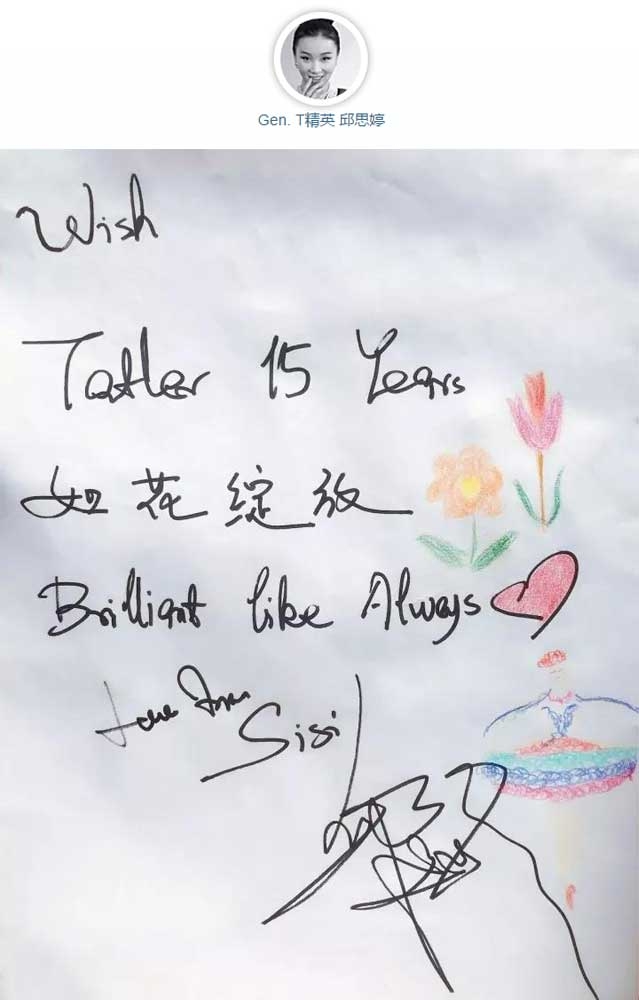 Gen. T精英 邱思婷
Wish
Tatler 15 Years
如花绽放
Brilliant like Always
Love from
Sisi